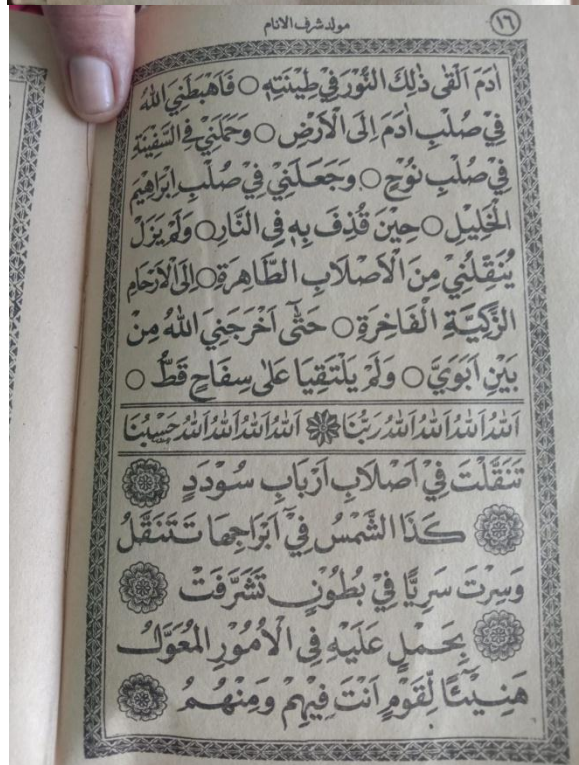 ١٦
مولد شرف الانام
اٰدَمَ اَلْقٰى ذٰلِكَ النُّوْرَ فِيْ طِيْنَتِهٖ ○ فَاَهْبَطَنِيَ اللهُ
فِيْ صُلْبِ اٰدَمَ اِلَى الْاَرْضِ ○ وَحَمَلَنِيْ فِي السَّفِيْنَةِ
فِيْ صُلْبِ نُوْحٍ ○ وَجَعَلَنِيْ فِيْ صُلْبِ اِبْرَاهِيْمَ
الْخَلِيْلِ ○ حِيْنَ قُذِفَ بِهٖ فِي النَّارِ ○ وَلَمْ يَزَلْ
يُنَقِّلُنِيْ مِنَ الْاَصْلَابِ الطَّاهِرَةِ ○ اِلَى الْاَرْحَامِ
الزَّكِيَّةِ الْفَاخِرَةِ ○ حَتّٰى اَخْرَجَنِيَ اللهُ مِنْ
بَيْنِ اَبَوَيَّ ○ وَلَمْ يَلْتَقِيَا عَلٰى سِفَاحٍ قَطُّ ○
اَللهُ اَللهُ اَللهُ اَللهُ رَبُّنَا اَللهُ اَللهُ اَللهُ اَللهُ حَسْبُنَا
تَنَقَّلْتَ فِيْ اَصْلَابِ اَرْبَابِ سُوْدَدٍ
كَذَا الشَّمْسُ فِيْ اَبْرَاجِهَا تَتَنَقَّلُ
وَسِرْتَ سَرِيًّا فِيْ بُطُوْنٍ تَشَرَّفَتْ
بِحَمْلٍ عَلَيْهِ فِي الْاُمُوْرِ الْمُعَوَّلُ
هَنِيْئًا لِّقَوْمٍ اَنْتَ فِيْهِمْ وَمِنْهُمُ